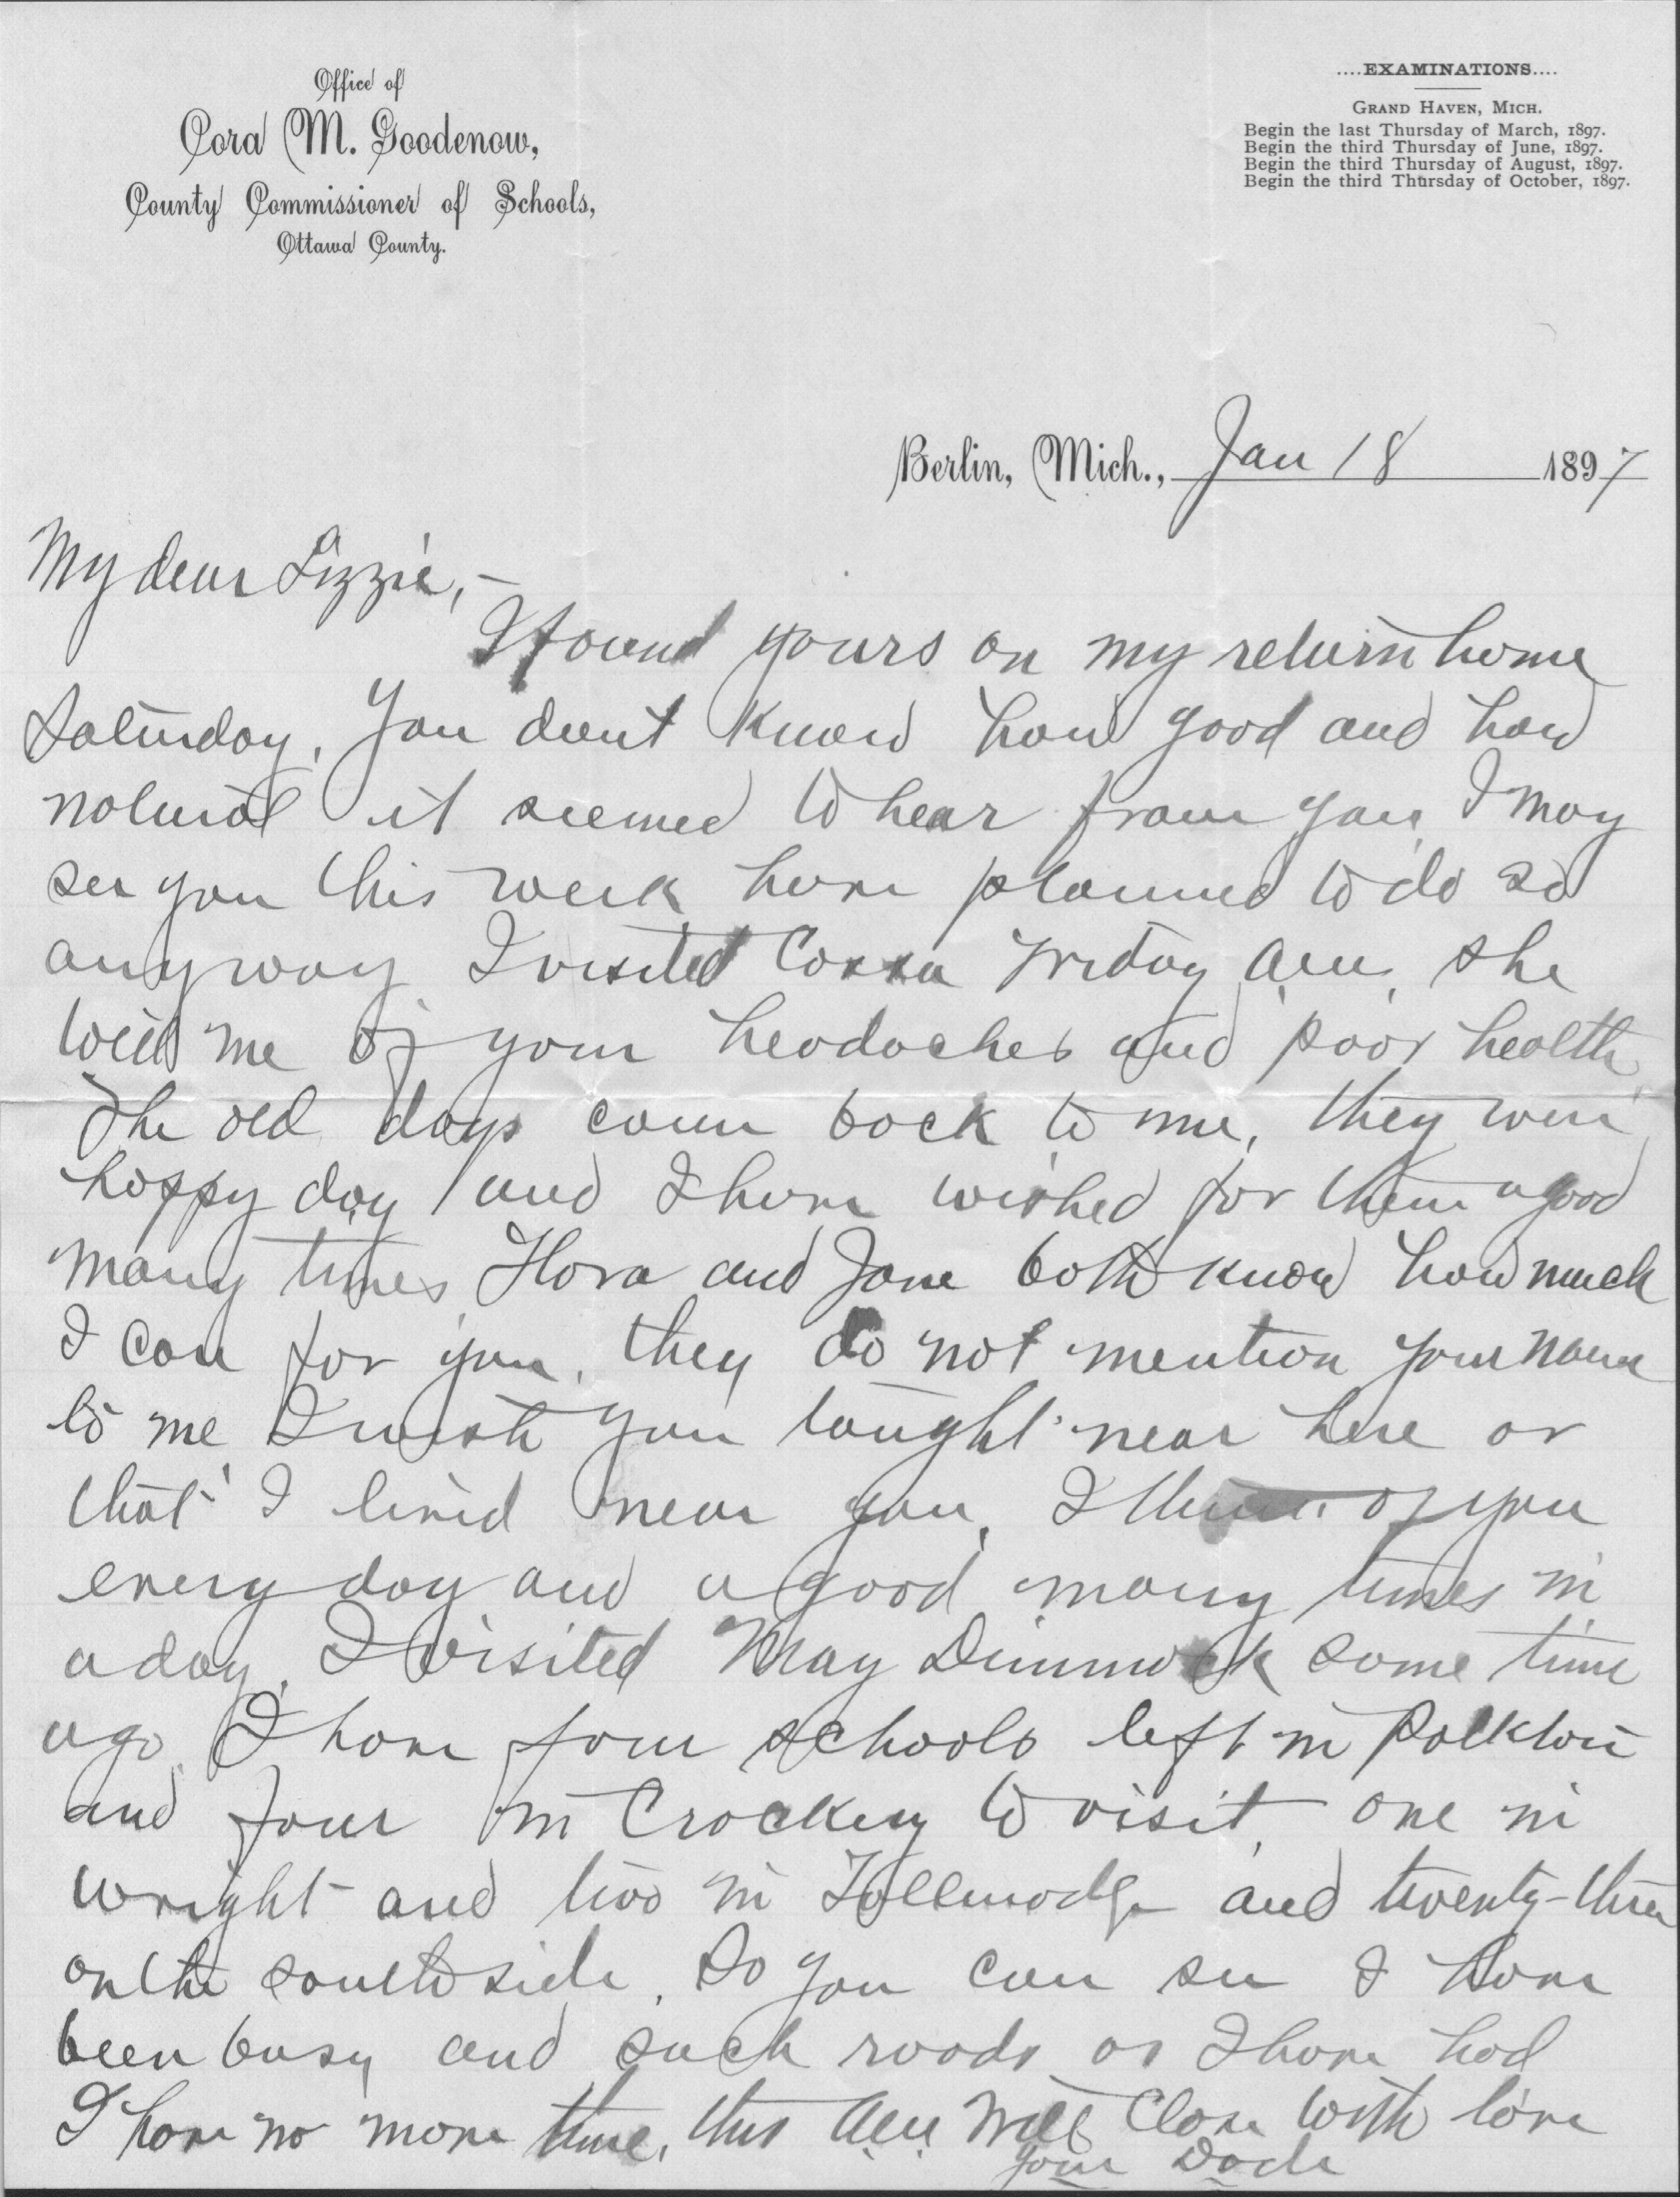 Office of
Cora M. Goodenow,
County Commissioner of Schools,
Ottawa County.
....EXAMINATIONS....
GRAND HAVEN, MICH.
Begin the last Thursday of March, 1897.
Begin the third Thursday of June, 1897.
Begin the third Thursday of August, 1897.
Begin the third Thursday of October, 1897.
Berlin, Mich., Jan 18 1897
My dear Lizzie,-
I found yours on my return home
Saturday, You dont know how good and how
natural it seemed to hear from you, I may
see you this week have planned to do so
anyway I visited Friday A.M. she
told me of your headaches and poor health
The old days come back to me, they were
happy day and I have wished for them a good
many times Flora and Jane both know how much
I care for you, they do not mention your name
to me, I wish you taught near here or
that I lived near you, I think of you
every day and a good many times in
a day, I visited May Dimmock some time
ago, I have four schools left in Polkton
and four in Crockery to visit, one in
Wright and two in Tallmadge and twenty-three
on the south side. So you can see I have
been busy and such roads as I have had
I have no more time, this A.M. Will close with love
Your